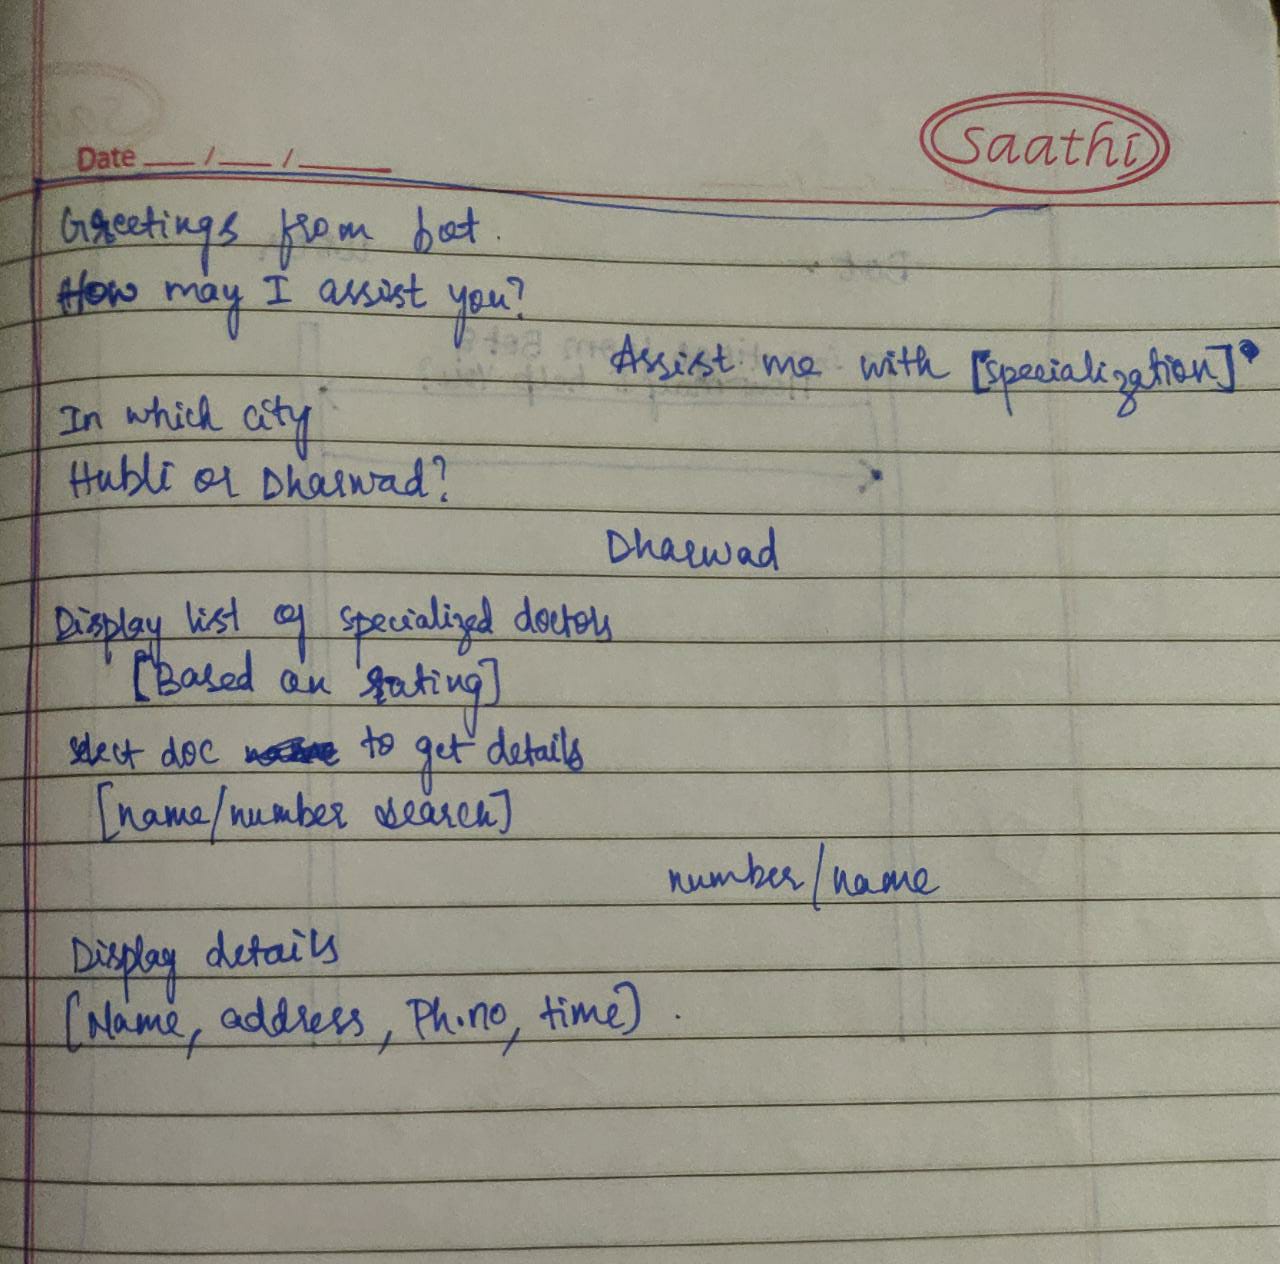 Saathi
Date __/__/____
Greetings from bot.
How may I assist you?
Assist me with [specialization]
In which city
Hubli or Dharwad?
Dharwad
Display list of specialized doctors
[Based on rating]
select doc to get details
[name/number search]
number/name
Display details
[Name, address, Ph.no, time].